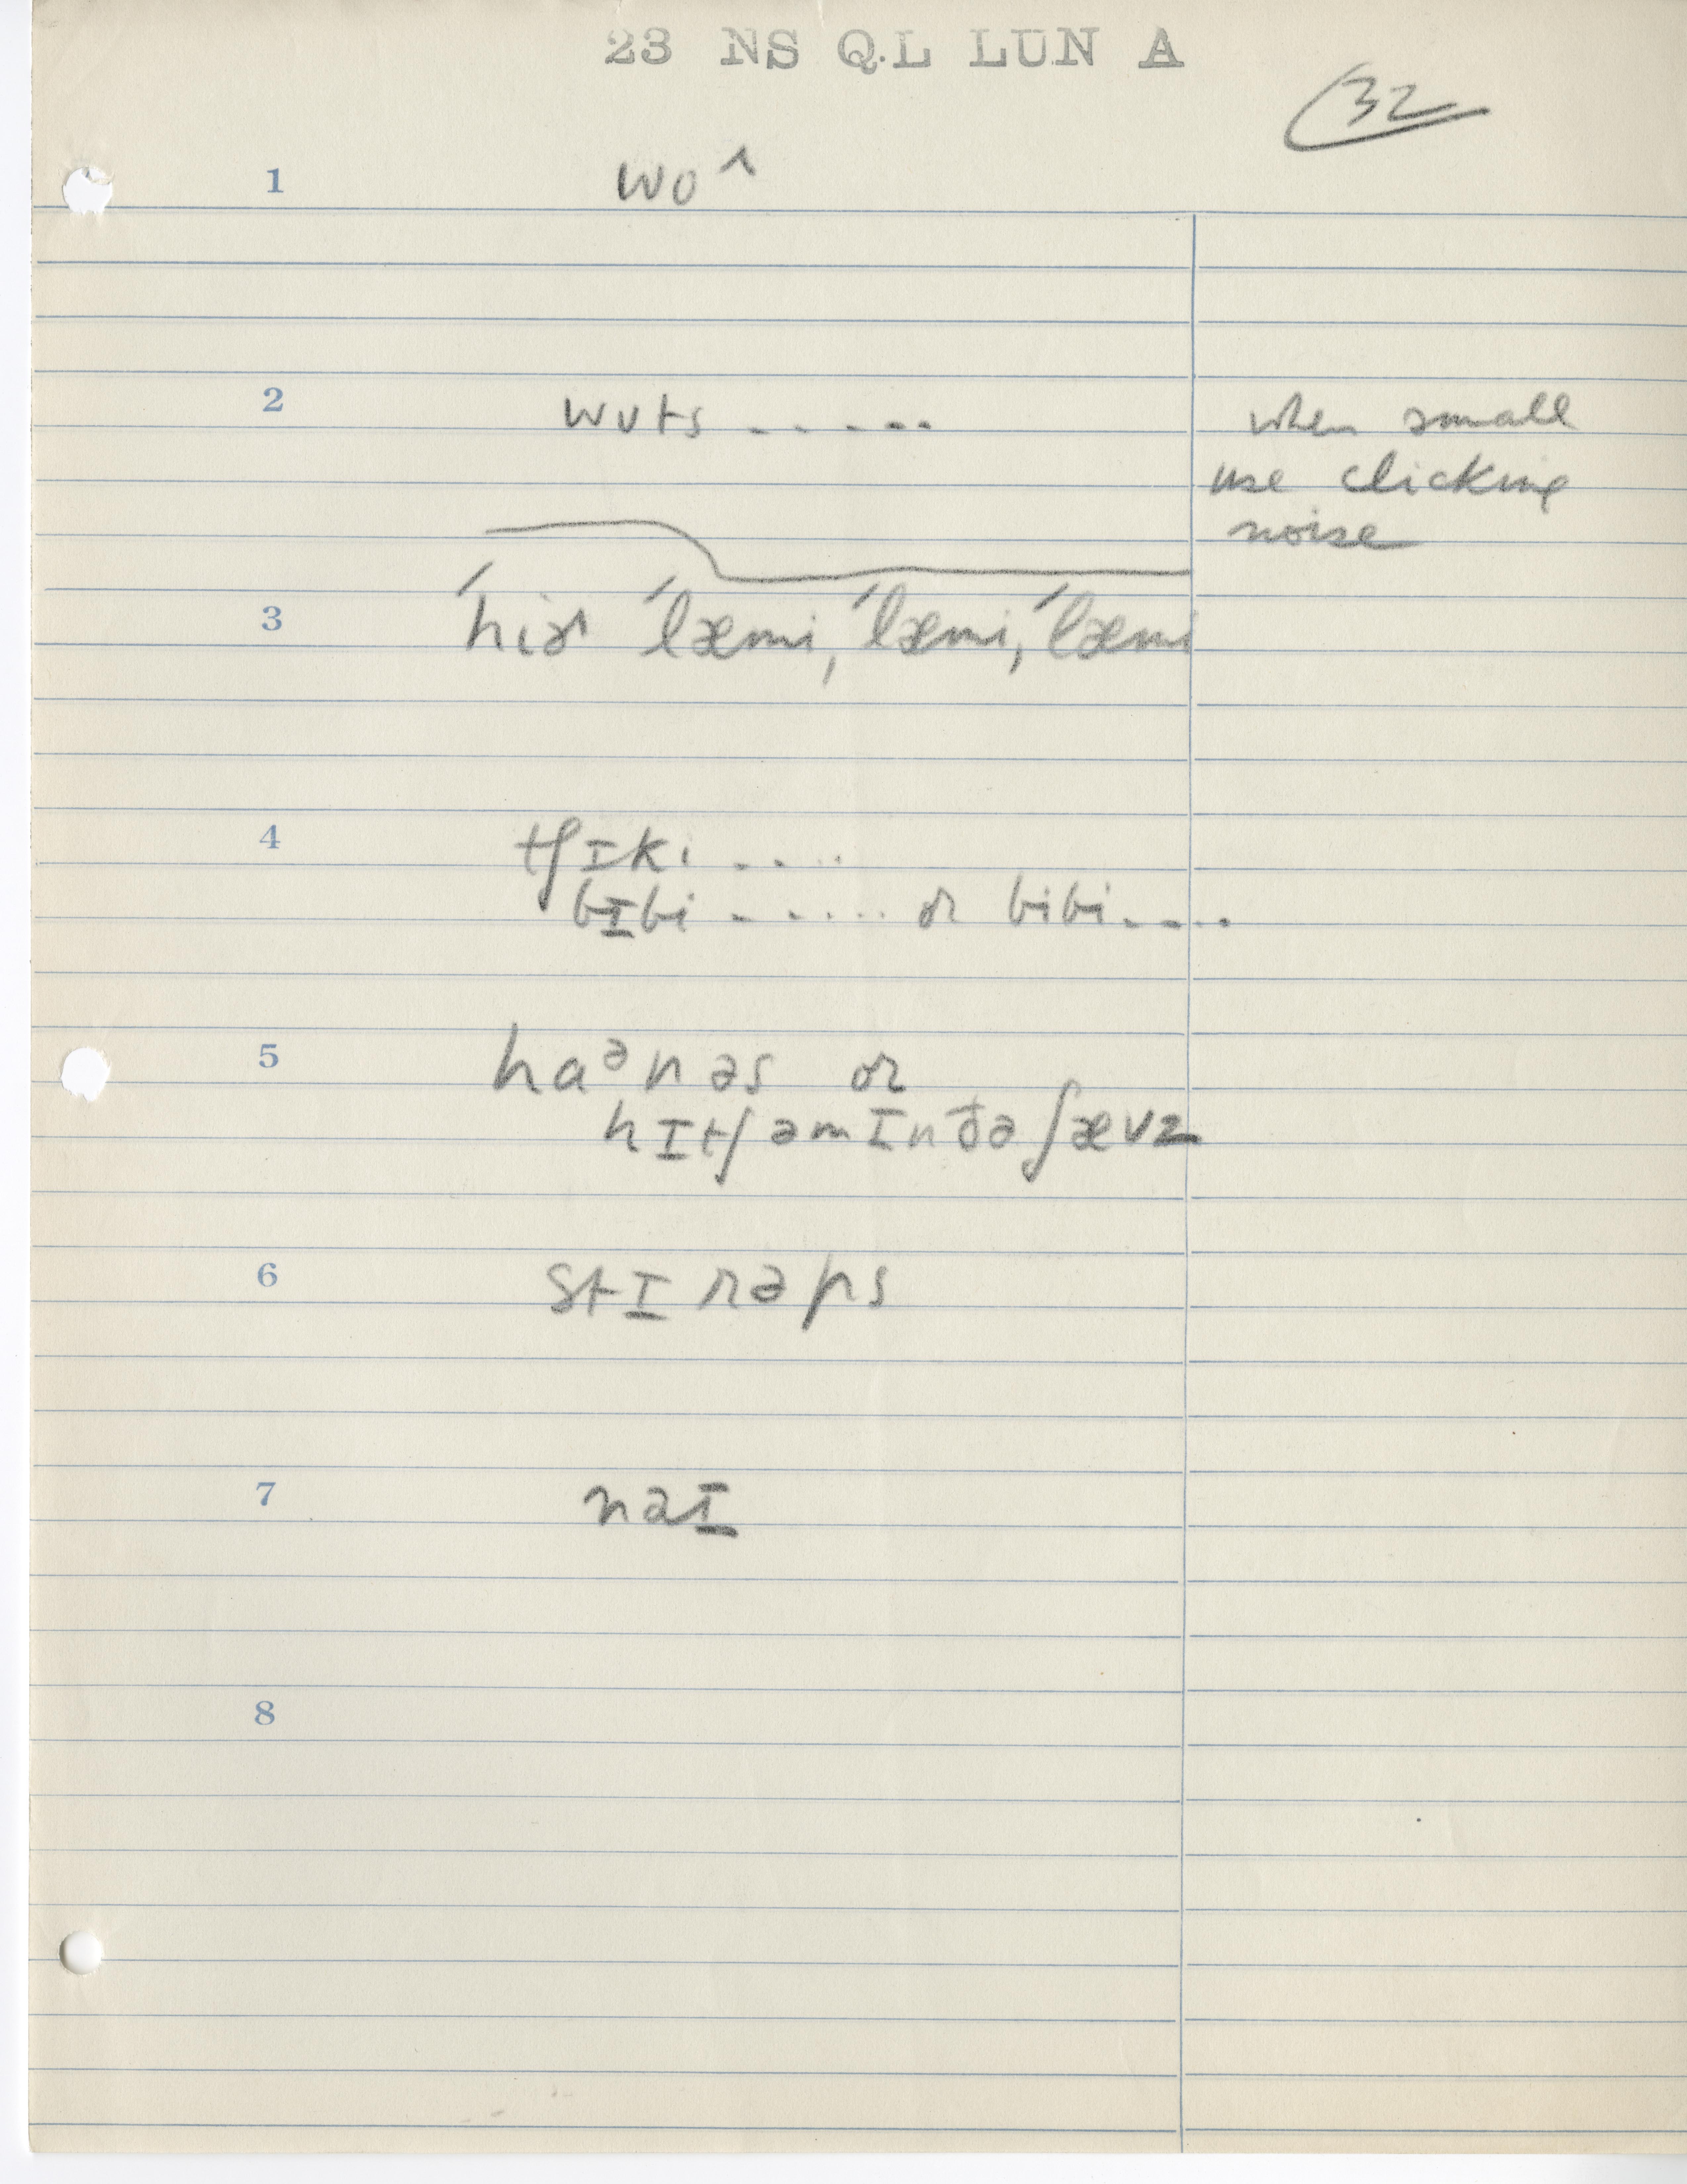 23 NS Q.L LUN A
32
1 wo^
2 wʊts ----- when small
use clicking
noise
3 ˈhiɚ ˈlæmi, ˈlæmi, ˈlæmi
4 tʃɪki ....
bɪbi ...... or bibi....
5 haᵊnəs or
hɪtʃəmɪnðəʃævz
6 stɪrəps
7 nəɪ
8